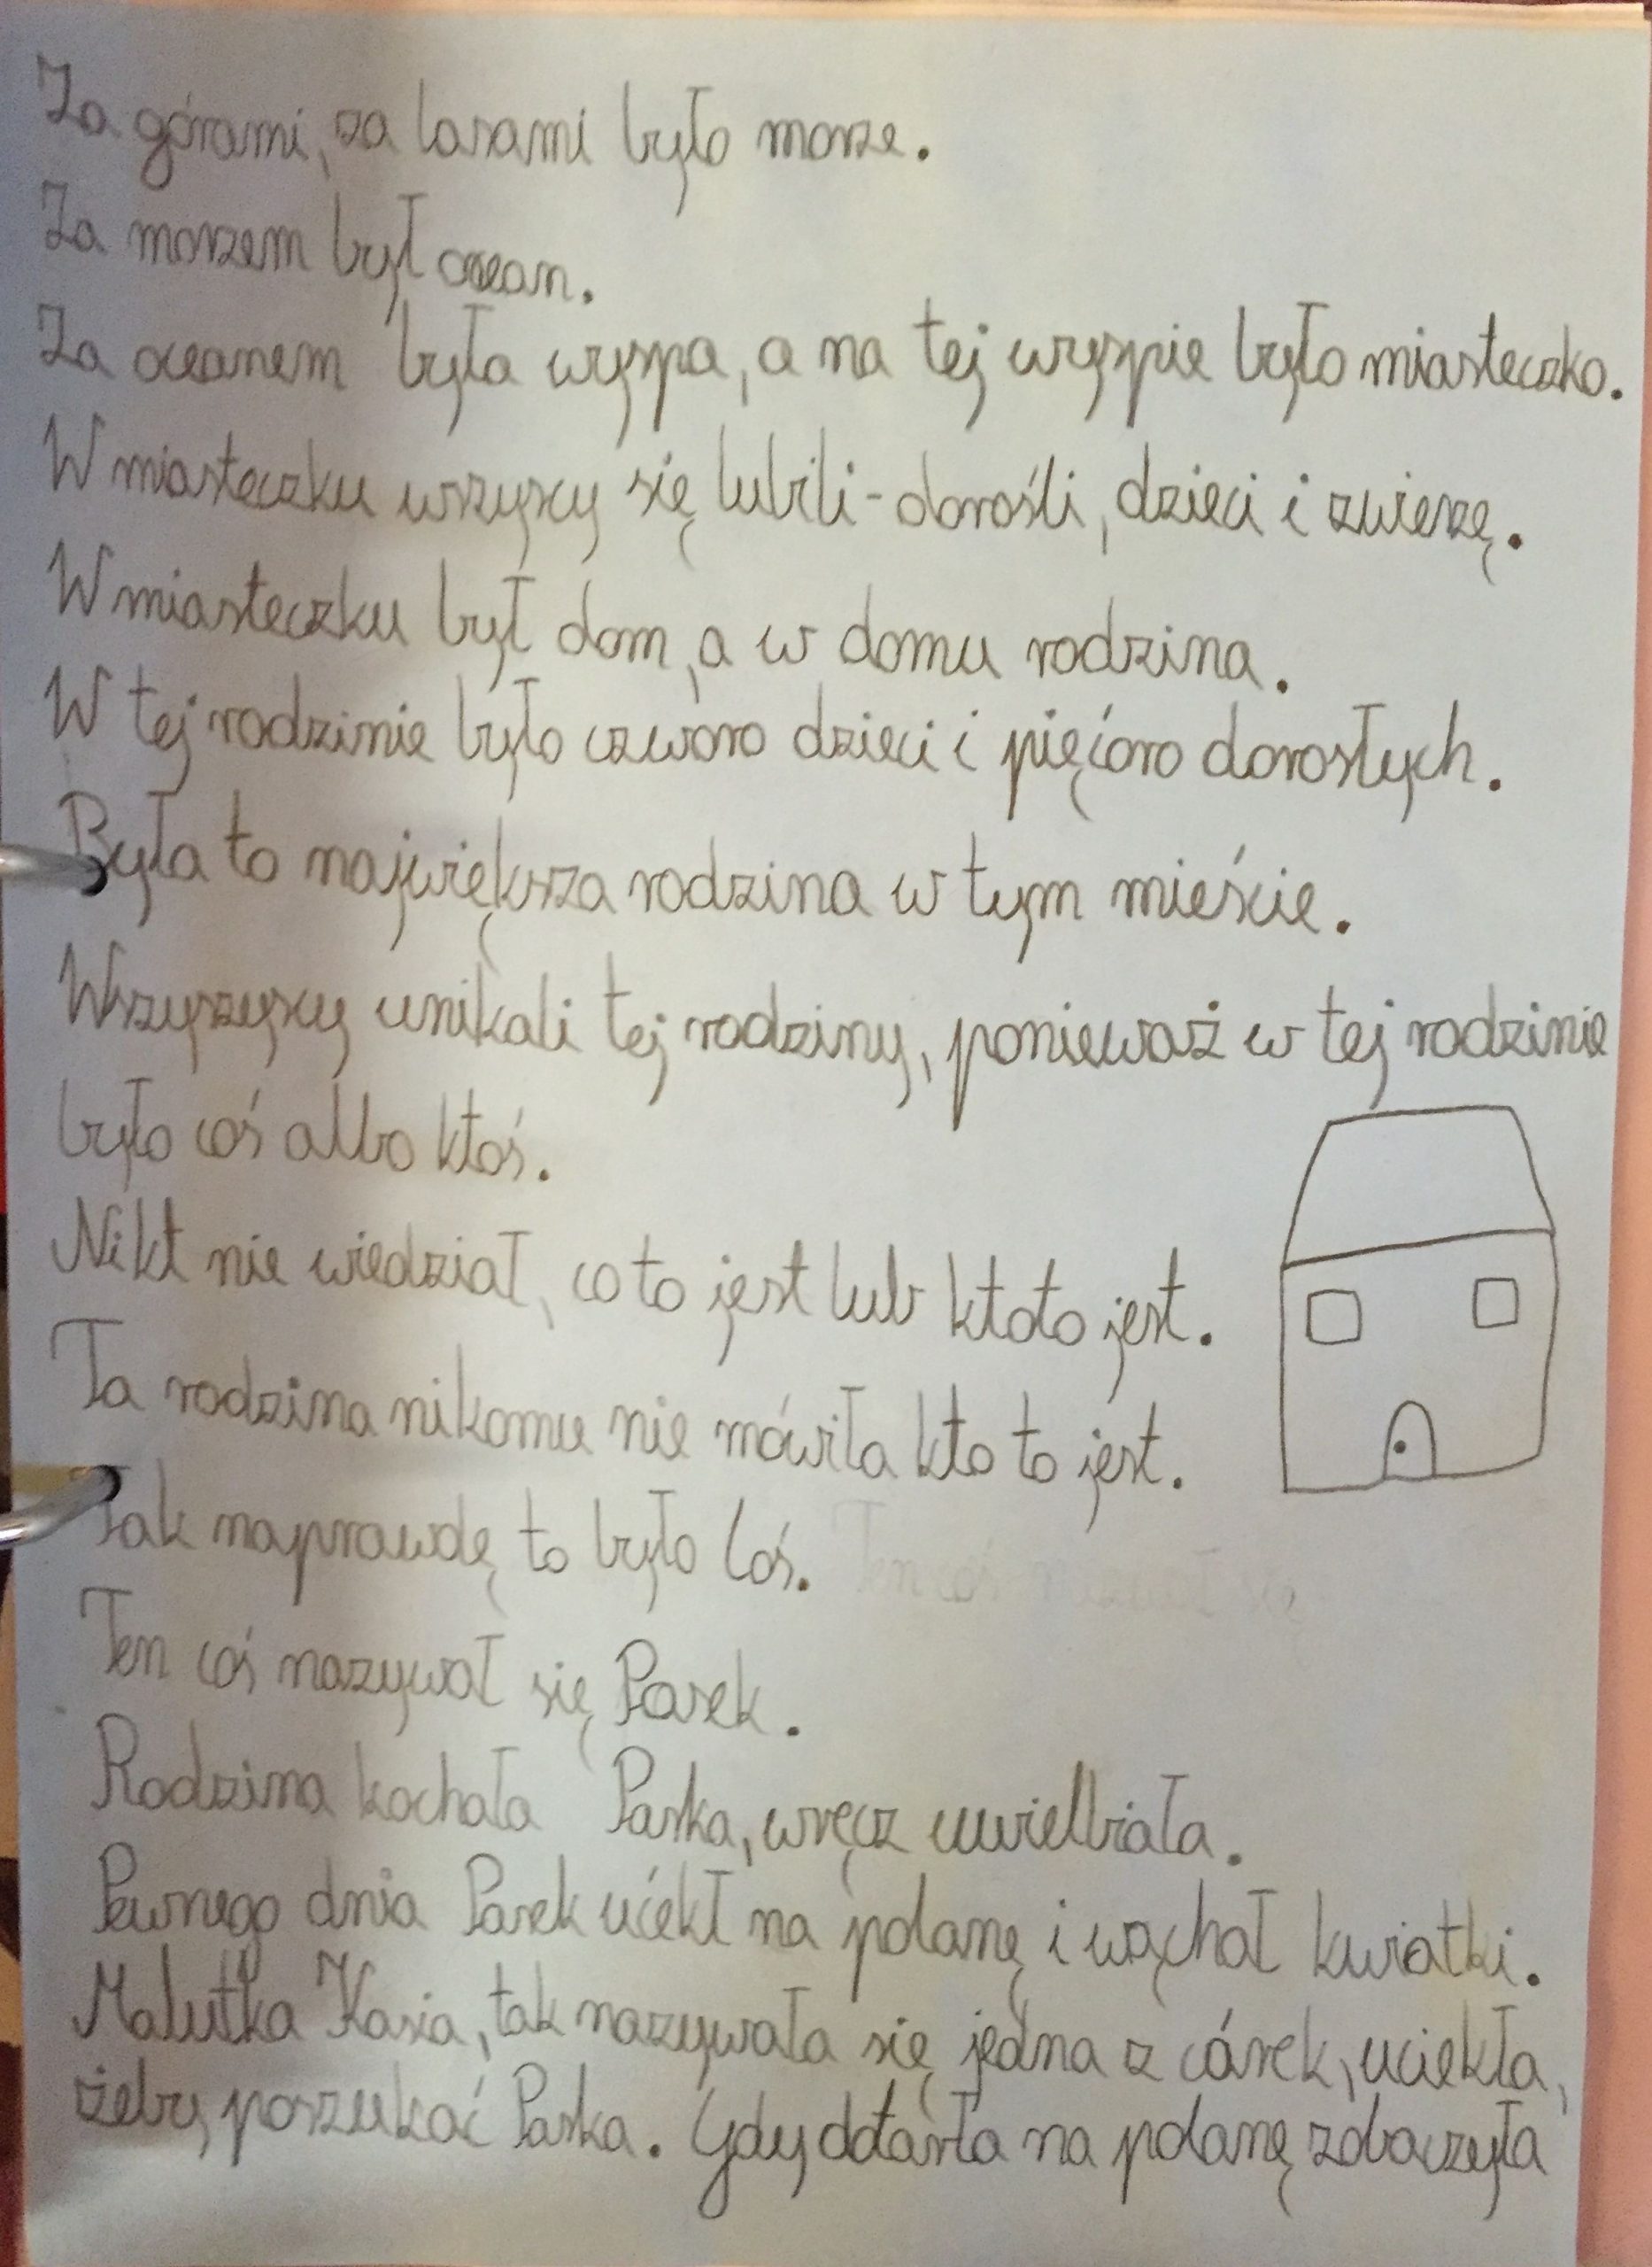 Za górami, za lasami było morze.
Za morzem był ocean.
Za oceanem była wyspa, a na tej wyspie było miasteczko.
W miasteczku wszyscy się lubili - dorośli, dzieci i zwierzę.
W miasteczku był dom, a w domu rodzina.
W tej rodzinie było czworo dzieci i pięcioro dorosłych.
Była to największa rodzina w tym mieście.
Wszyszyscy unikali tej rodziny, ponieważ w tej rodzinie
było coś albo ktoś.
Nikt nie wiedział, co to jest lub kto to jest.
Ta rodzina nikomu nie mówiła kto to jest.
Tak naprawdę to było Coś. Ten coś nazwał się
Ten coś nazywał się Parek.
Rodzina kochała Parka, wręcz uwielbiała.
Pewnego dnia Parek ućekł na polanę i wąchał kwiatki.
Malutka Kasia, tak nazywała się jedna z córek, uciekła,
żeby poszukać Parka. Gdy dotarła na polanę zobaczyła